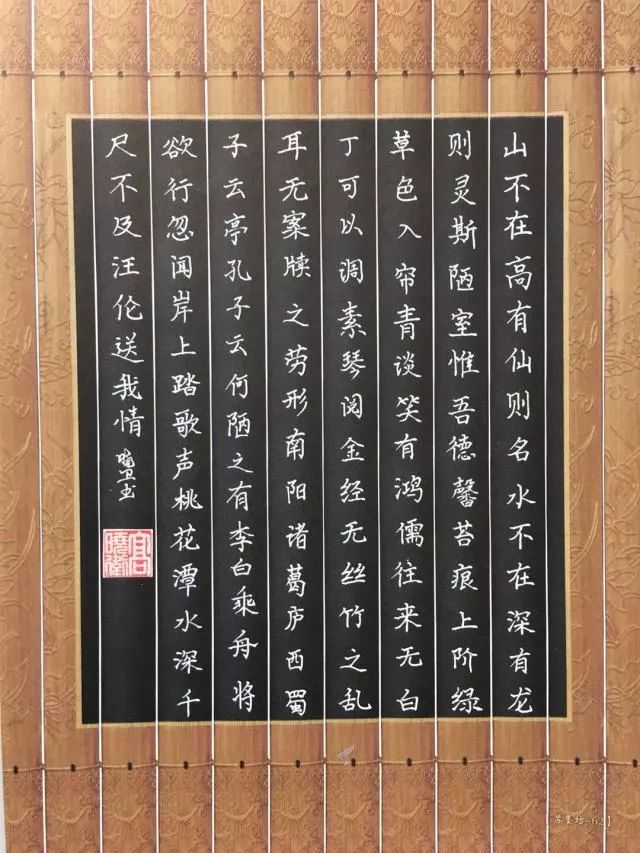 山不在高有仙则名水不在深有龙
则灵斯陋室惟吾德馨苔痕上阶绿
草色入帘青谈笑有鸿儒往来无白
丁可以调素琴阅金经无丝竹之乱
耳无案牍之劳形南阳诸葛庐西蜀
子云亭孔子云何陋之有李白乘舟将
欲行忽闻岸上踏歌声桃花潭水深千
尺不及汪伦送我情
晓卫
宫曉衛
【苏墨坊-62】